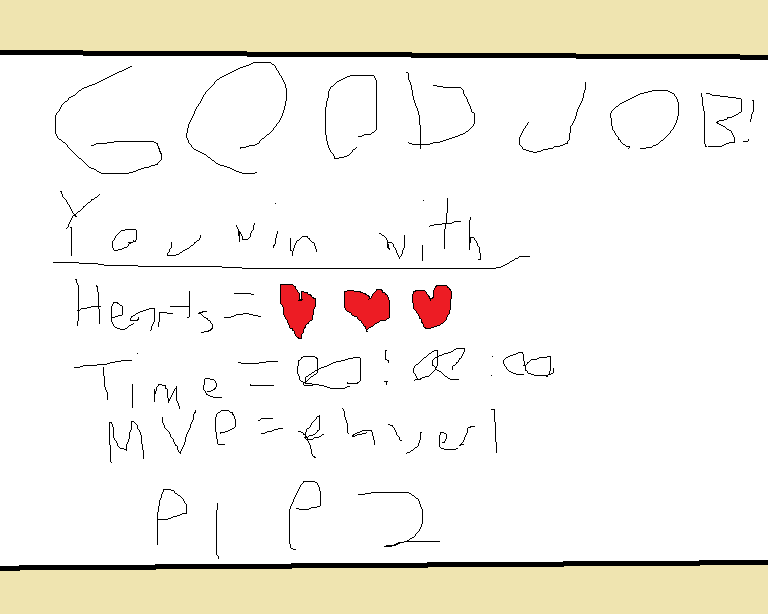 GOOD JOB!
You win with
Hearts =
Time = 00:00:00
MVP = player1
P1 P2